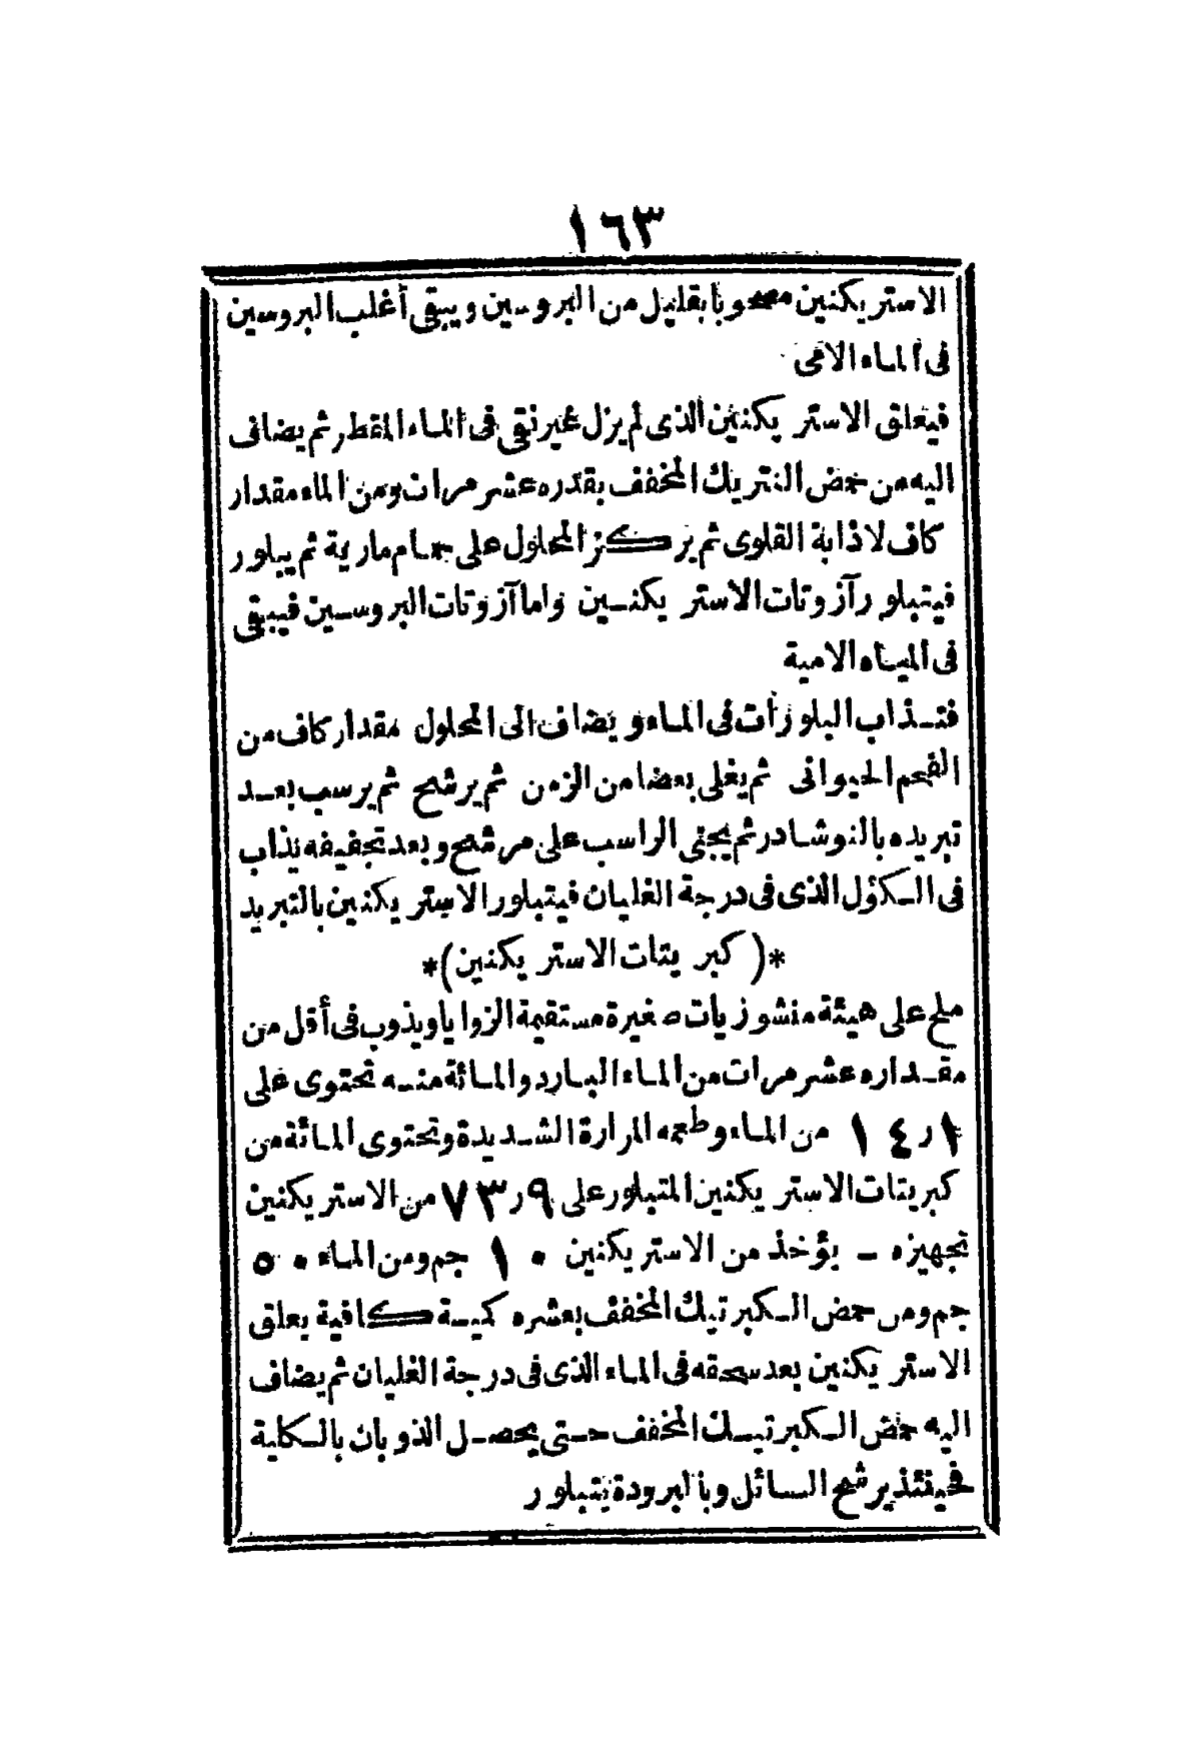 ١٦٣
الاستريكنين مصحوبا بقليل من البروسين ويبقى أغلب البروسين
فى الماء الامى
فيعلق الاستريكنين الذى لم يزل غير نقى فى الماء المقطر ثم يضاف
اليه من حمض النتريك المخفف بقدره عشر مرات ومن الماء مقدار
كاف لاذابة القلوى ثم يركز المحلول على حمام مارية ثم يبلور
فيتبلور آزوتات الاستريكنين واما آزوتات البروسين فيبقى
فى المياه الامية
فتذاب البلورات فى الماء ويضاف الى المحلول مقدار كاف من
الفحم الحيوانى ثم يغلى بعضا من الزمن ثم يرشح ثم يرسب بعد
تبريده بالنوشادر ثم يجنى الراسب على مرشح وبعد تجفيفه يذاب
فى الكؤل الذى فى درجة الغليان فيتبلور الاستريكنين بالتبريد
*(كبريتات الاستريكنين)*
ملح على هيئة منشوزيات صغيرة مستقيمة الزوايا ويذوب فى أقل من
مقداره عشر مرات من الماء البارد والمائة منه تحتوى على
١ر١٤ من الماء وطعمه المرارة الشديدة وتحتوى المائة من
كبريتات الاستريكنين المتبلور على ٩ر٧٣ من الاستريكنين
تجهيزه - يؤخذ من الاستريكنين ١٠ جم ومن الماء ٥٠
جم ومن حمض الكبرتيك المخفف بعشره كمية كافية يعلق
الاستريكنين بعد سحقه فى الماء الذى فى درجة الغليان ثم يضاف
اليه حمض الكبرتيك المخفف حتى يحصل الذوبان بالكلية
فحينئذ يرشح السائل وبالبرودة يتبلور